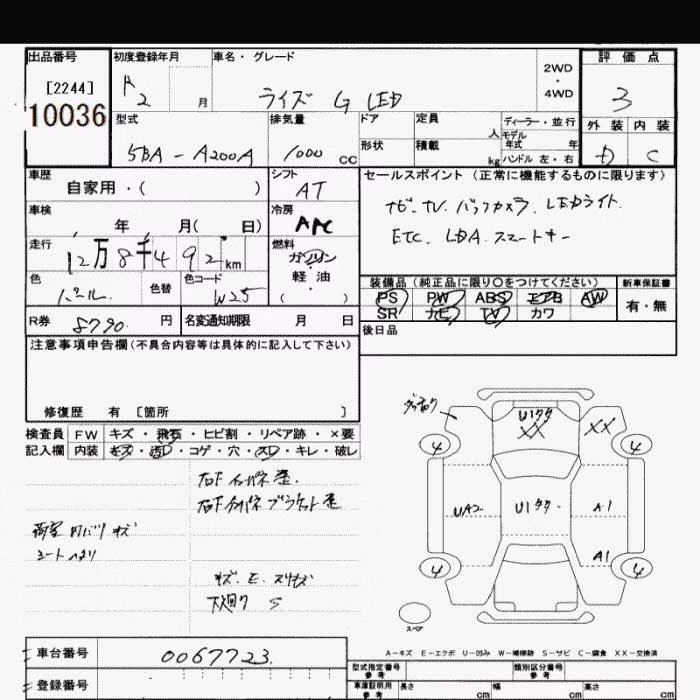 出品番号
[2244]
10036
初度登録年月
R2 月
車名・グレード
ライズ G LED
2WD
・
4WD
型式
5BA-A200A
排気量
1000 CC
ドア
形状
定員 人
積載 kg
ディーラー・並行
モデル
年式 年
ハンドル 左・右
評価点
3
外装 内装
D C
車歴
自家用・( )
シフト
AT
車検
年 月( 日)
冷房
AAC
走行
12万8千492 km
燃料
ガソリン
・
軽油
( )
色
パール
色替
色コード
W25
R券 8790 円
名変通知期限 月 日
セールスポイント(正常に機能するものに限ります)
ナビ. TV. バックカメラ. LEDライト.
ETC. LDA. スマートキー
装備品(純正品に限り〇をつけてください)
PS PW ABS エアB AW
SR ナビ TV カワ
新車保証書
有・無
後日品
注意事項申告欄(不具合内容等は具体的に記入して下さい)
修復歴 有 〔箇所 〕
検査員
記入欄
FW キズ・飛石・ヒビ割・リペア跡・×要
内装 キズ・汚れ・コゲ・穴・スレ・キレ・破レ
右F インパネ歪.
右F インパネブラケット歪
荷室内バリ キズ
シートヘタリ
キズ. E. スリキズ
下廻り S
U1タタ
XX
XX
4
4
UA2
U1タタ.
A-1
A1
4
4
スペア
A-キズ E-エクボ U-凹み W-補修跡 S-サビ C-腐食 XX-交換済
車台番号 0067723
登録番号
型式指定番号
参考
類別区分番号
参考
車庫証明用
参考
長さ cm
幅 cm
高さ cm